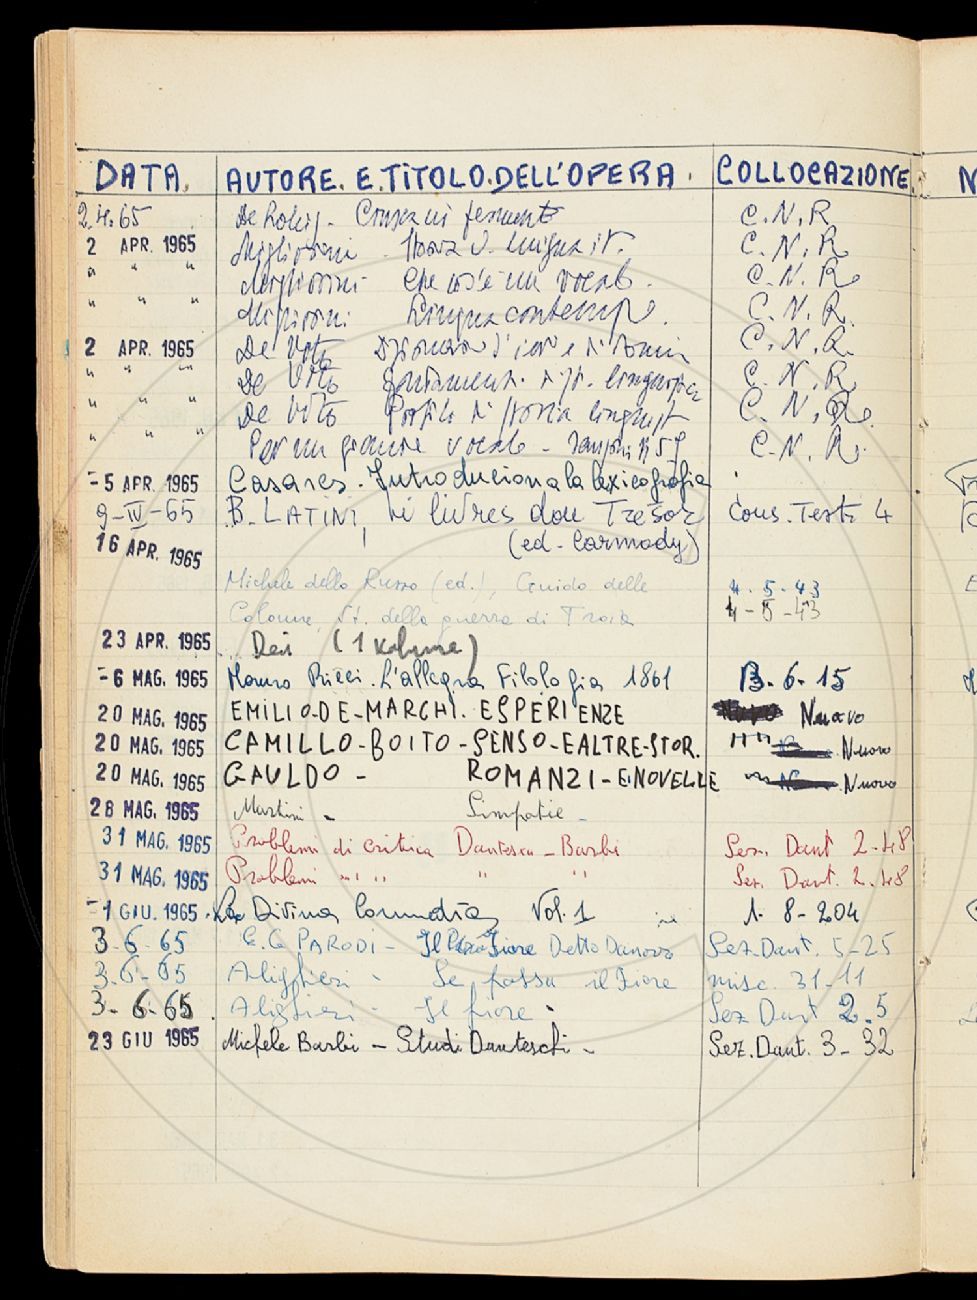 DATA. AUTORE. E. TITOLO. DELL'OPERA. COLLOCAZIONE
2.4.65 C.N.R
2 APR. 1965 Migliorini Nuova lingua it. C.N.R
" " " Migliorini Che cos'è un vocab. C.N.R.
" " " Migliorini Lingua contemp. C.N.R.
2 APR. 1965 De Voto C.N.R.
" " " De Voto C.N.R
" " " De Voto Profilo di storia linguist C.N.R.
" " " Per un grande vocab - C.N.R.
-5 APR. 1965 Casares. Introducion a la lexicografia
9-IV-65 B. LATINI, li livres dou Trésor Cons. Testi 4
16 APR. 1965 (ed. Carmody)
Michele dello Russo (ed.), Guido delle 4.5.43
Colonne, St. della guerra di Troia 4-5-43
23 APR. 1965 Dei (1 volume)
-6 MAG. 1965 Mauro Ricci. L'allegra Filologia 1861 B.6.15
20 MAG. 1965 EMILIO-DE-MARCHI. ESPERIENZE Nuovo
20 MAG. 1965 CAMILLO-BOITO-SENSO-E ALTRE-STOR. Nuovo
20 MAG. 1965 GAULDO - ROMANZI-E NOVELLE Nuovo
28 MAG. 1965 Martini - Simpatie -
31 MAG. 1965 Problemi di critica Dantesca - Barbi Sez. Dant 2.48
31 MAG. 1965 Problemi " " " " Sez. Dant. 2.48
-1 GIU. 1965 La Divina Commedia Vol. 1 1-8-204
3-6-65 E.G. PARODI - Il Fiore Detto Sez. Dant. 5-25
3.6-65 Alighieri - Se possa il Fiore misc. 31-11
3-6-65. Alighieri - Il fiore - Sez Dant 2.5
23 GIU 1965 Michele Barbi - Studi Danteschi - Sez. Dant. 3-32